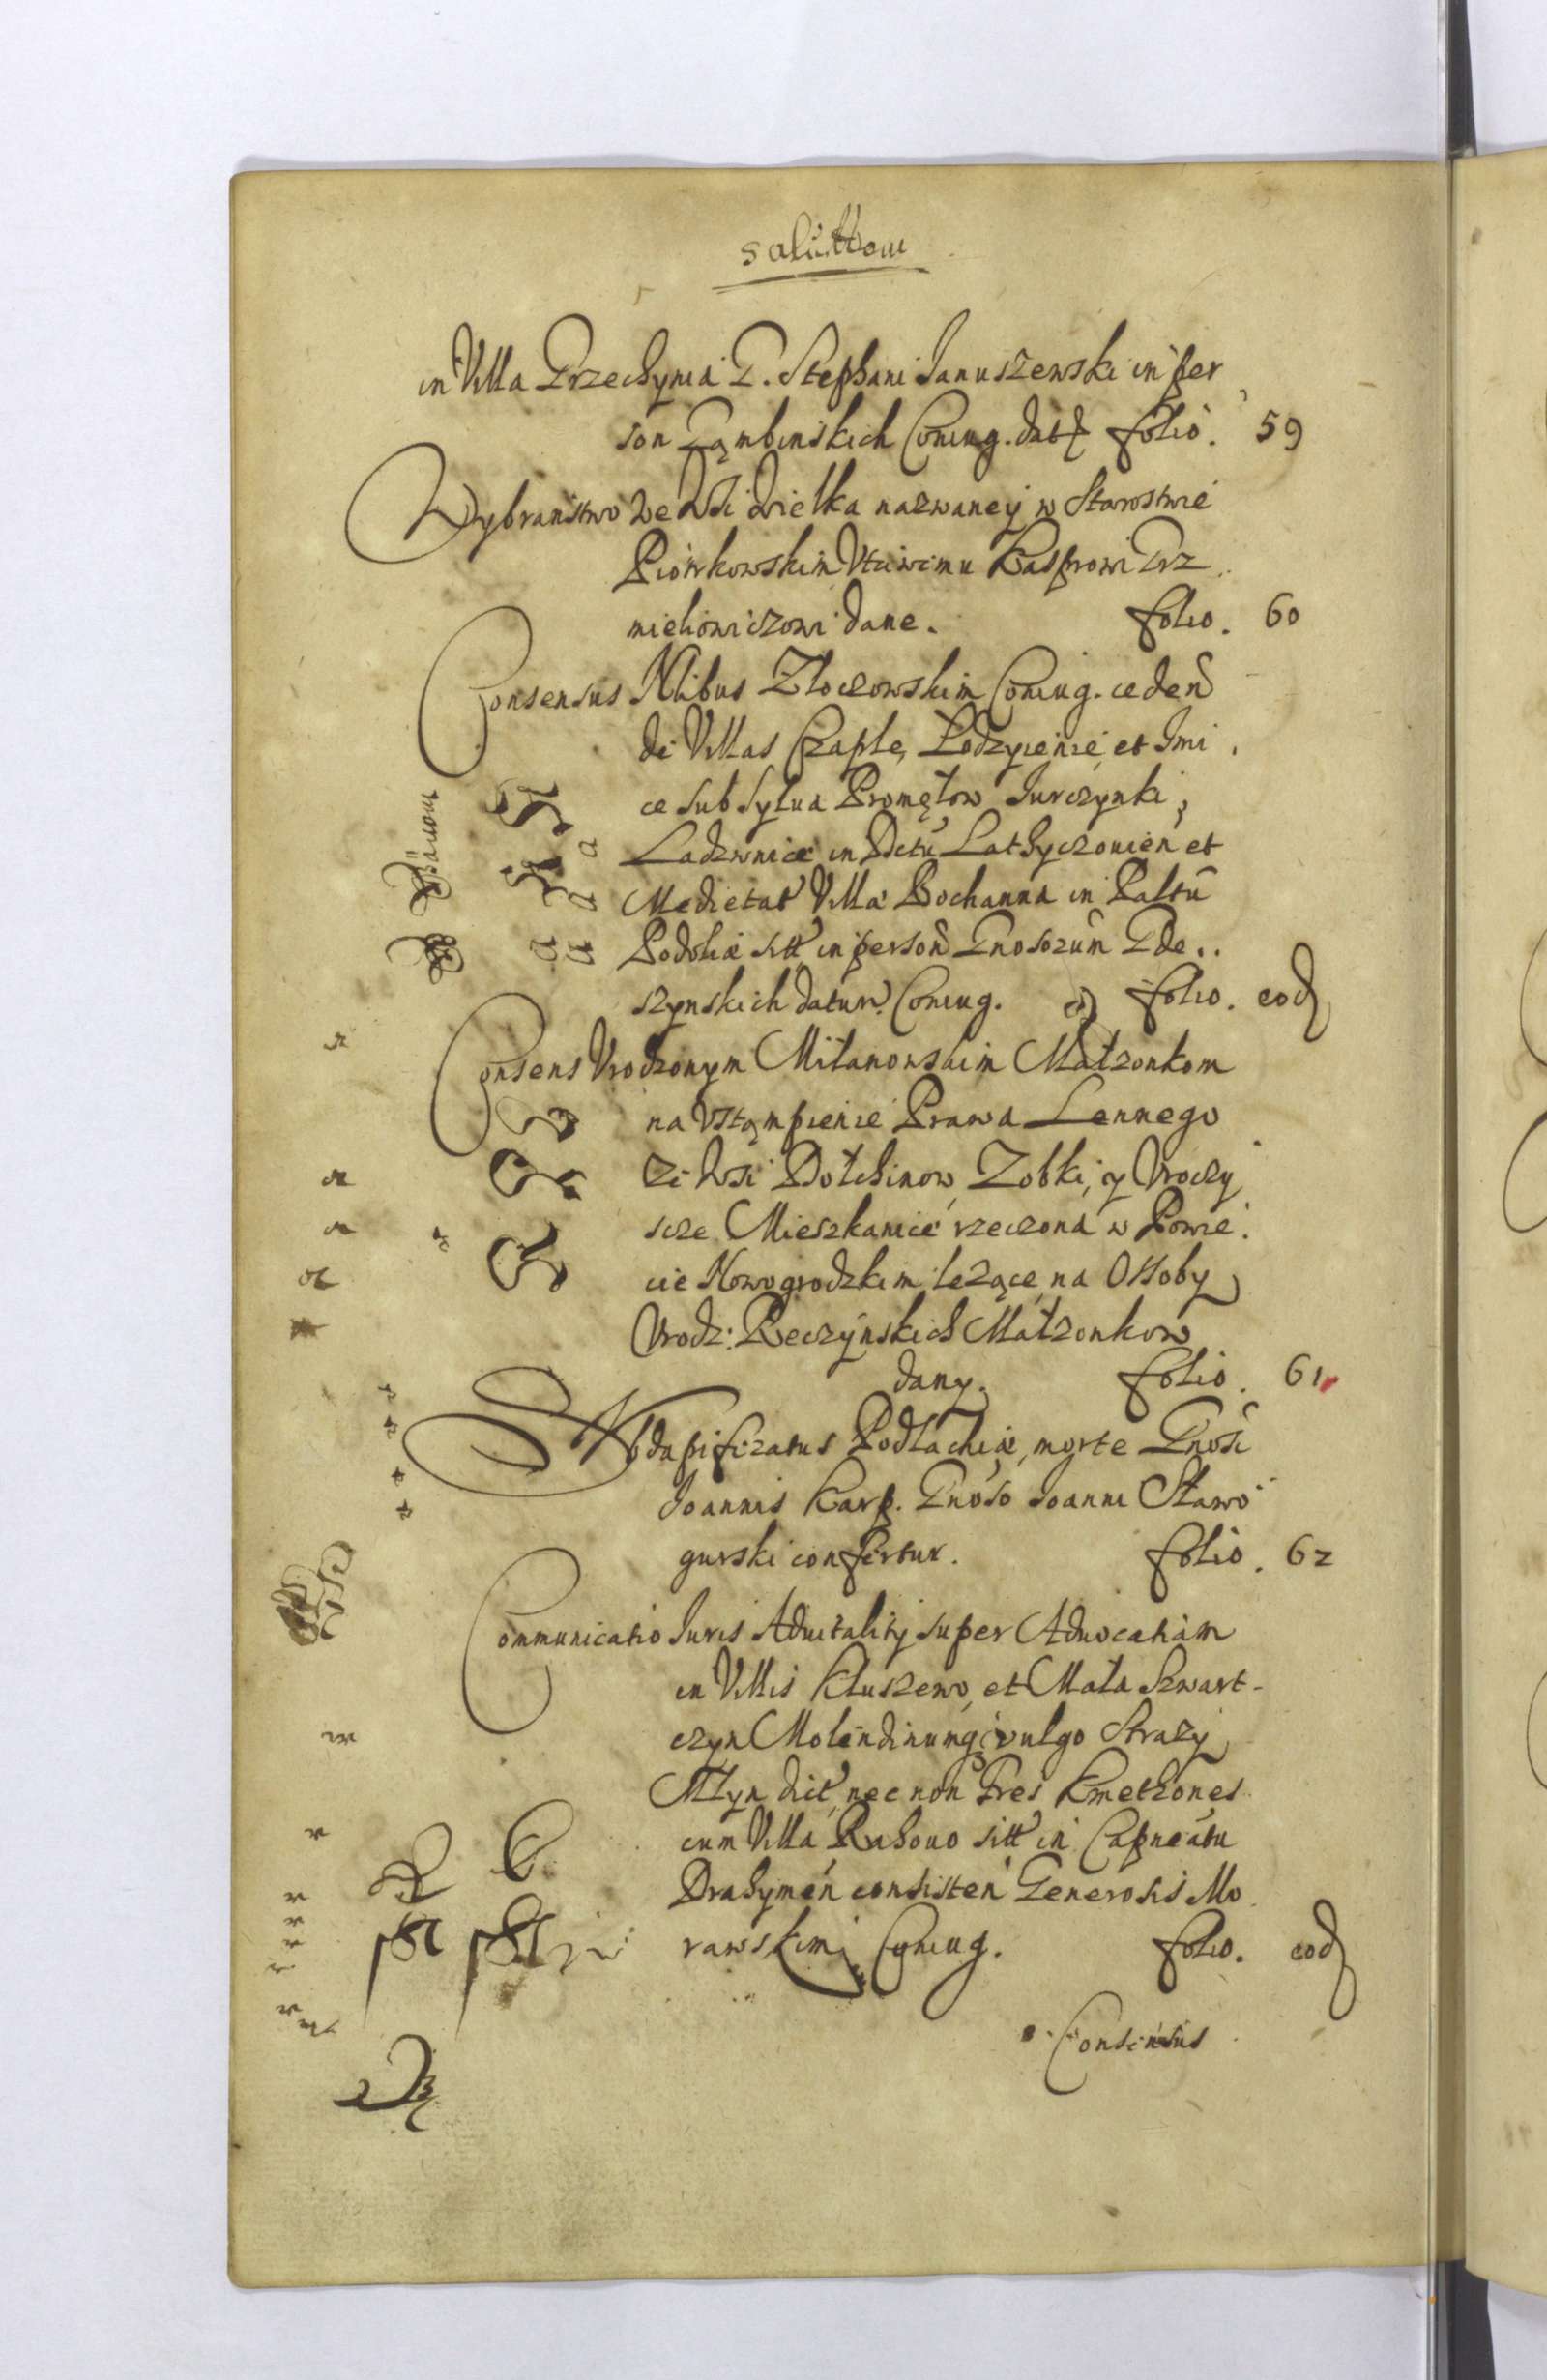 in Villa Przechynia G. Stephani Januszewski in per
son Dąmbinskich Coniug. dat folio. 59
Wybranstwo we Wsi Wielka nazwaney w Starostwie
Piotrkowskim Vcciwemu Kasprowi Prz
miehowiczowi dane. folio. 60
Consensus Nlibus Złoczowskim Coniug. ceden
di Villas Czaple, Lodzycienie, et Imi
ce sub sylua Promętow Jurczynki,
Ladzwnice in Dctu Lathyczouien et
Medietat Villæ Bochanna in Paltu
Podoliæ sitt in person Gnosorum Gde..
szynskich datur Coniug. folio. eod
Consens Vrodzonym Milanowskim Małzonkom
na Vstąmpienie Prawa Lennego
Ze Wsi Dołchinow, Zobki, y Vroczy
scze Mieszkanice rzeczona w Powie.
cie Nowogrodzkim lezące, na Ossoby
Vrodz: Reczynskich Małzonkow
dany. folio. 61
Subdapiferatus Podlachiæ, morte Gnosi
Joannis Karp. Gnoso Joanni Stawo
gurski confertur. folio. 62
Communicatio Juris Aduitalitij super Aduocatiam
in Villis Kluszewo, et Mała Szwart-
czyn Molendinumq; vulgo Strazy
Młyn dict, nec non Tres Kmethones
cum Villa Rahouo sitt in Capneatu
Drahymen consisten Generosis Mo
rawskim Coniug. folio. eod
Consensus